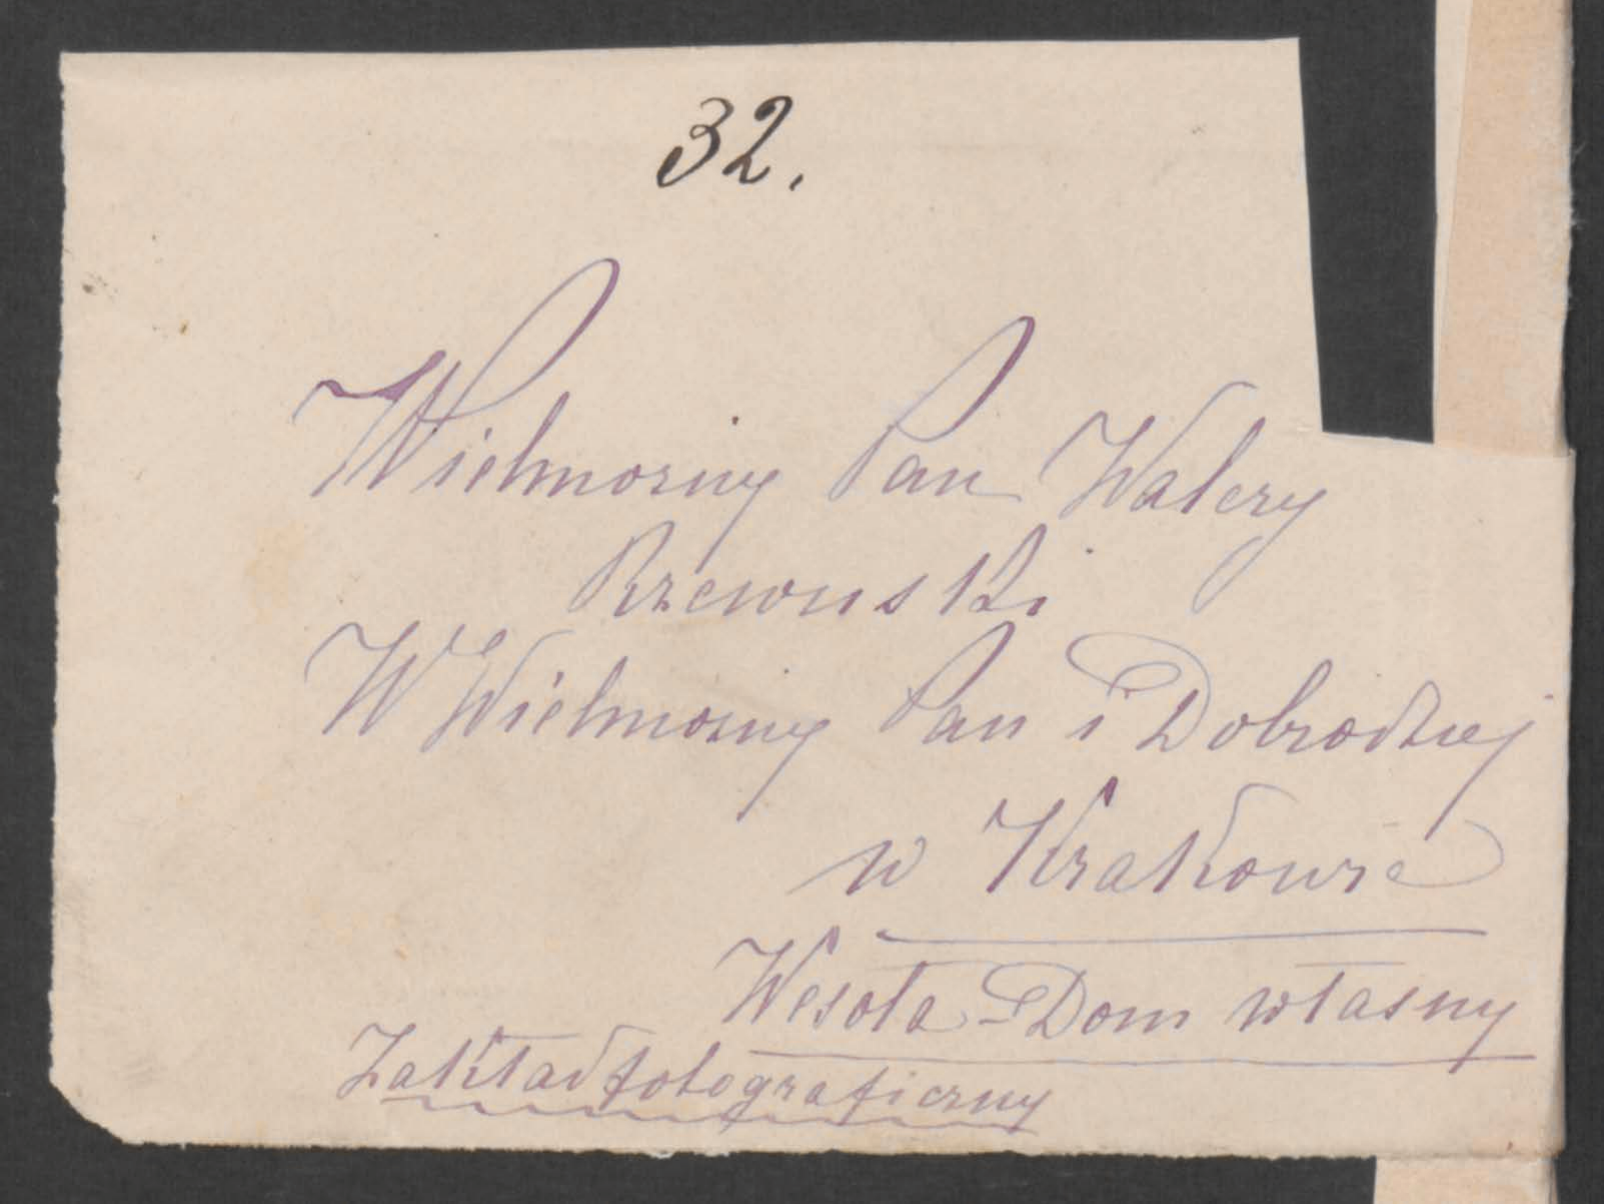 32.
Wielmożny Pan Walery
Rzewuski
W Wielmożny Pan i Dobrodziej
w Krakowie
Wesoła - Dom własny
Zakład fotograficzny